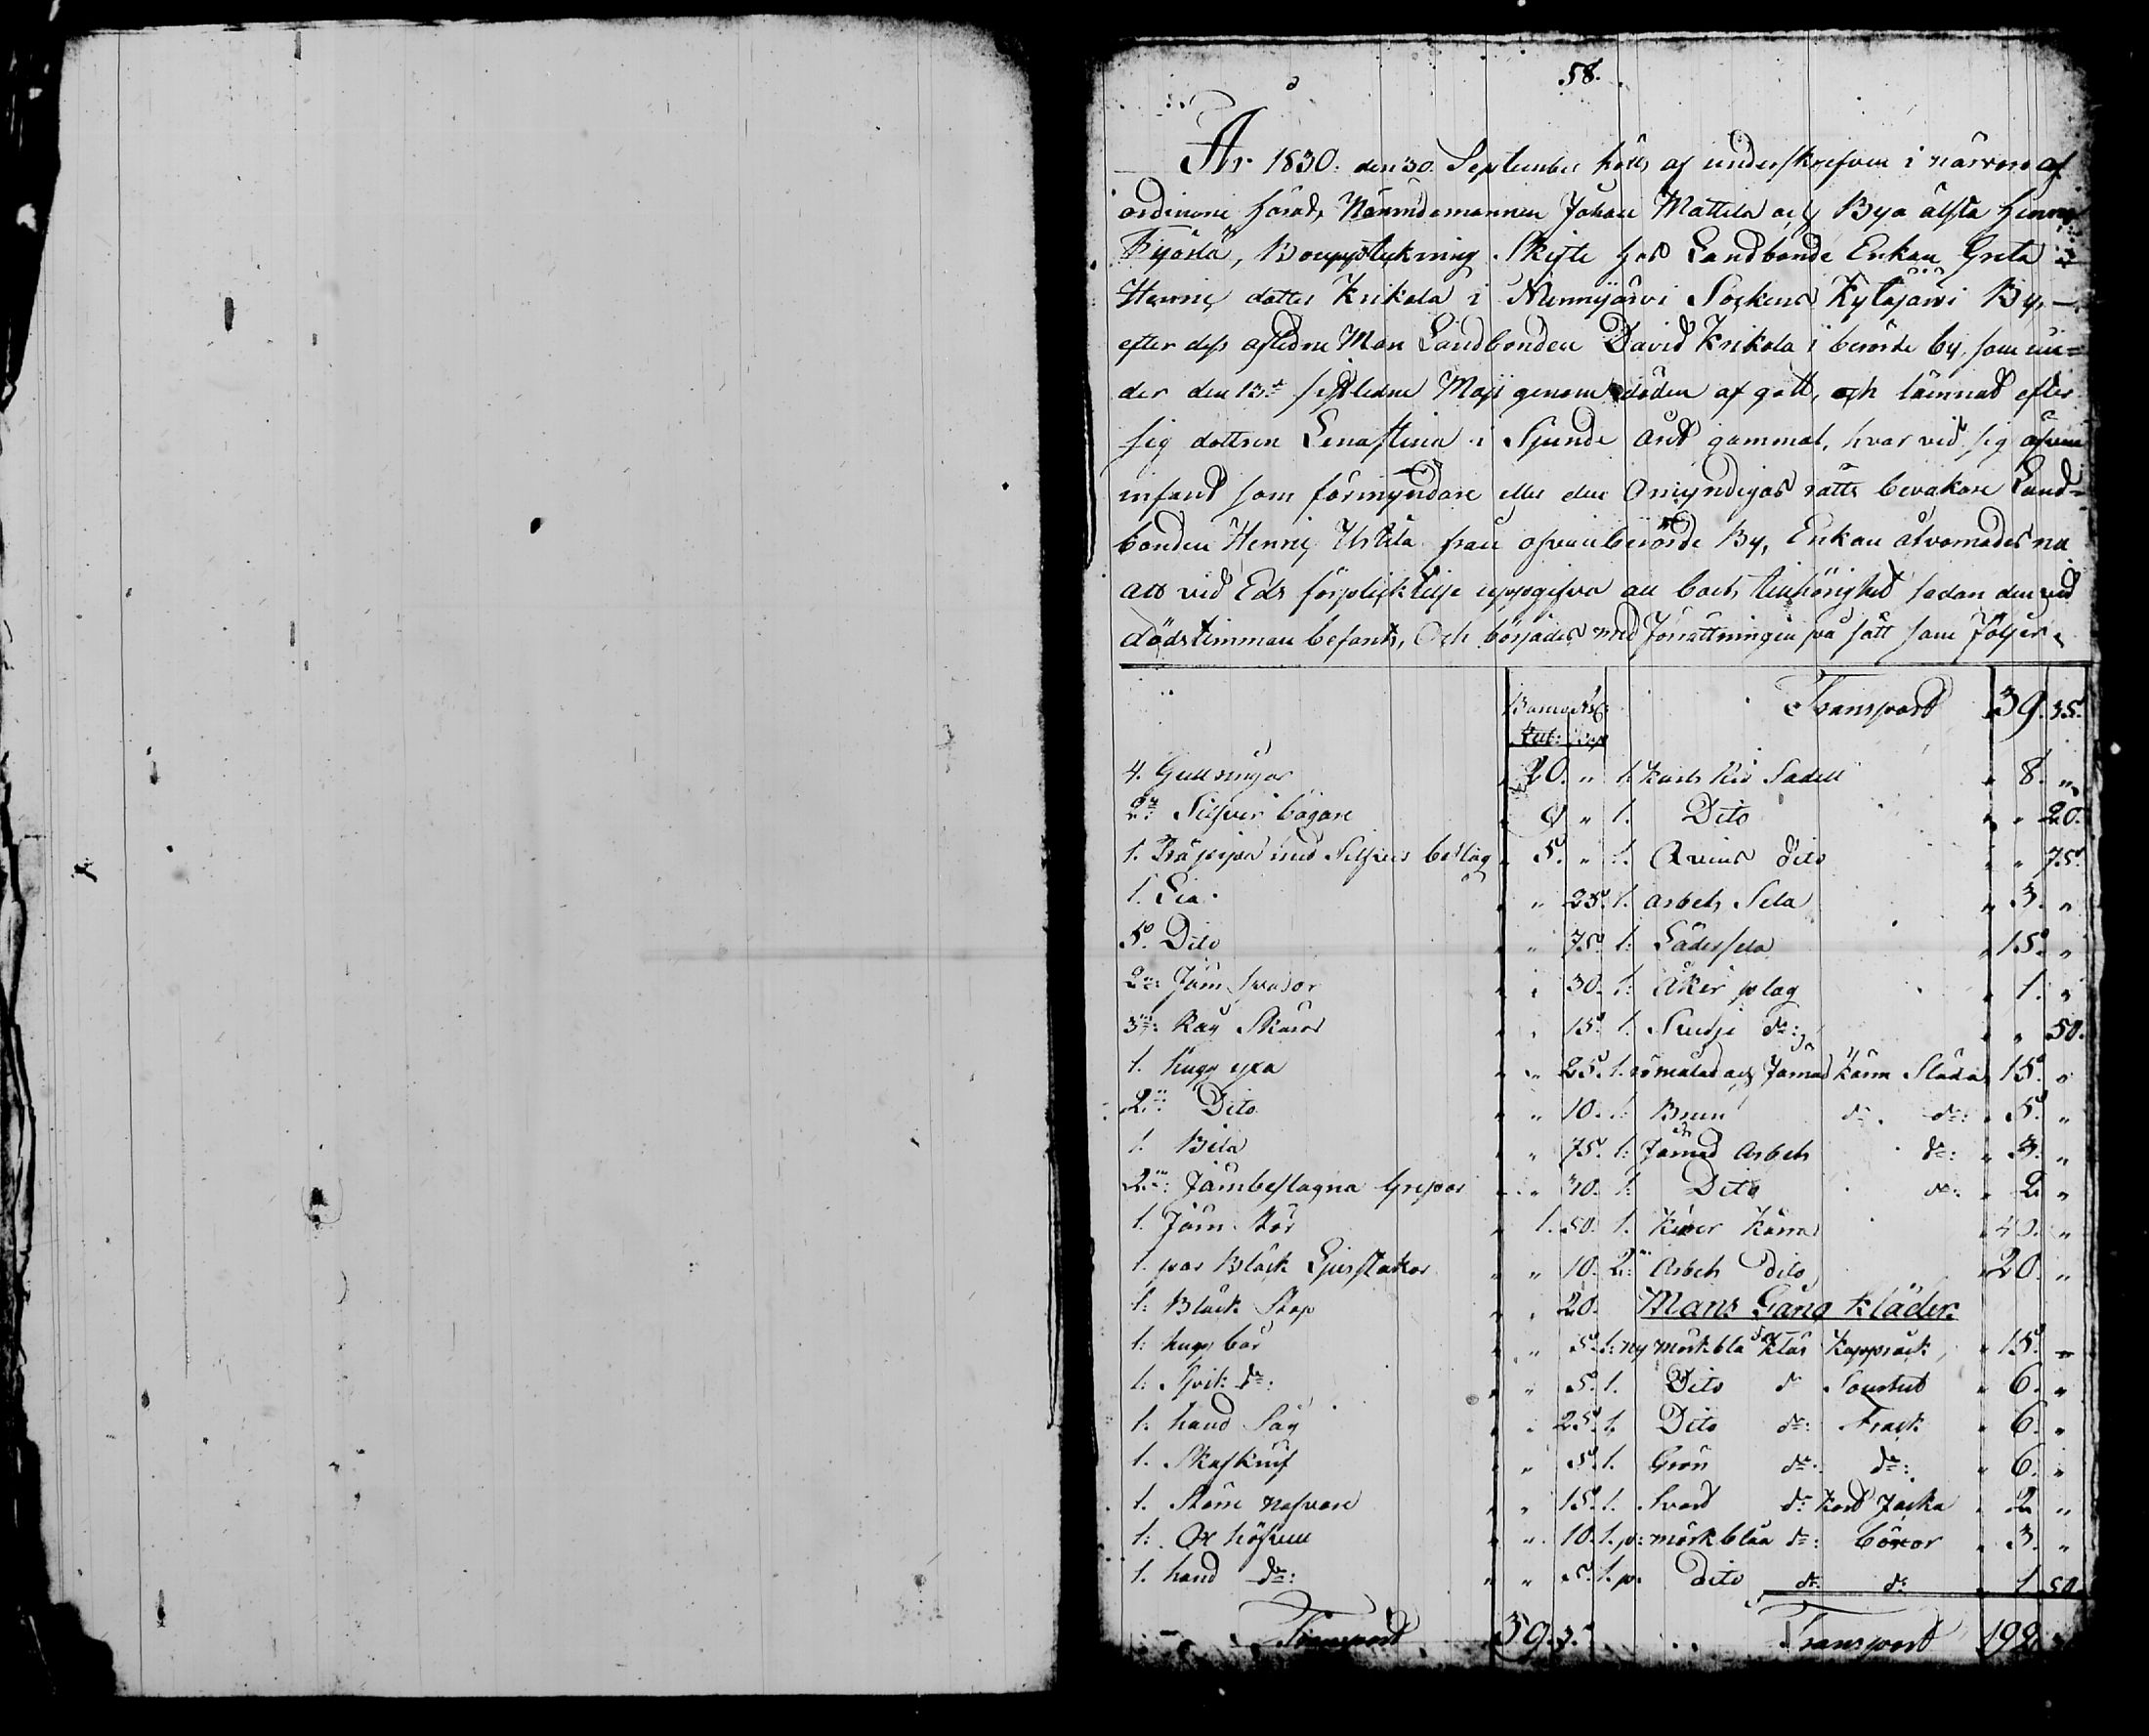 58.
År 1830. den 30. September hölts af underskrefven i närvaro af
ordinarie härads Nämndemannen Johan Mattila och Bya älsta Henric
Fyörlä, Bouppteckning Skifte hos Landbonde Enkan Greta
Henrics dotter Krikola i Nurmijärvi Sockens Kytäjärvi By,
efter dess afledne Man Landbonden David Krikola i berörde by, som un=
der den 13de sistledne Maji genom döden afgått, och lämnat efter
sig dottren Lenastina i Sjunde året gammal, hvar vid sig äfven
infant som förmyndare eller den Omyndigas rätts bevakare Land=
bonden Henric Uotila från ofvanberörde By, Enkan åtvarnades nu
att vid Eds förplicktelse uppgifva all boets tillhörighet sådan den vid
dödstimman befants, Och börjades med Förrättningen på sätt som följer.
Banco Ass:
Rub: Cop
4. Gullringar " 20. "
2ne Silfver bägare " 9 "
1. Träpipa med Silfvers beslag " 5. "
1. Lia " " 25.
5. Dito " " 75.
2ne: Järn spador " " 30.
3ne: Råg Skäror " " 15.
1. hugg yxa " " 25.
2ne: Dito " " 10.
1. Bila " " 75.
2ne: Järnbeslagna Grepar " " 30.
1. Järn Stör " 1. 50.
1. par Bläck Ljusstakar " " 10.
1: Bläck Stop " " 20.
1: hugg bår " " 5.
1: Spik do: " " 5.
1: hand Såg " " 25.
1. Skafknif " " 5.
1. Större nafvare " " 15.
1: Ox höfvell " " 10.
1. hand do: " " 5.
Transport 39. 35.
Transport 39. 35.
1. Karls Rid Sadell " 8. "
1. Dito " " 20.
1. Qvins dito " " 75.
1. arbets Sela " 3. "
1: Läderssela " 15. "
1: Åker plog " 1. "
1. Svidje do: " " 50.
1. römålad och Järnad Kärn Släda 15. "
1: Brun do. do: " 5. "
1: Järnad Arbets do: " 3. "
1: Dito do: " 2. "
1. Kärra " 40. "
2ne: Arbets dito " 20. "
Mans Gång Kläder.
1: ny mörkblå Klås Kapprock " 15. "
1. Dito do Sourtut " 6. "
1. Dito do: Frack " 6. "
1. Grön do: do: " 6. "
1. Svart do: Kort Jacka " 2 "
1. p: mörkblåa do: böxor " 3. "
1. p. dito do. do " 1. 50.
Transport 192